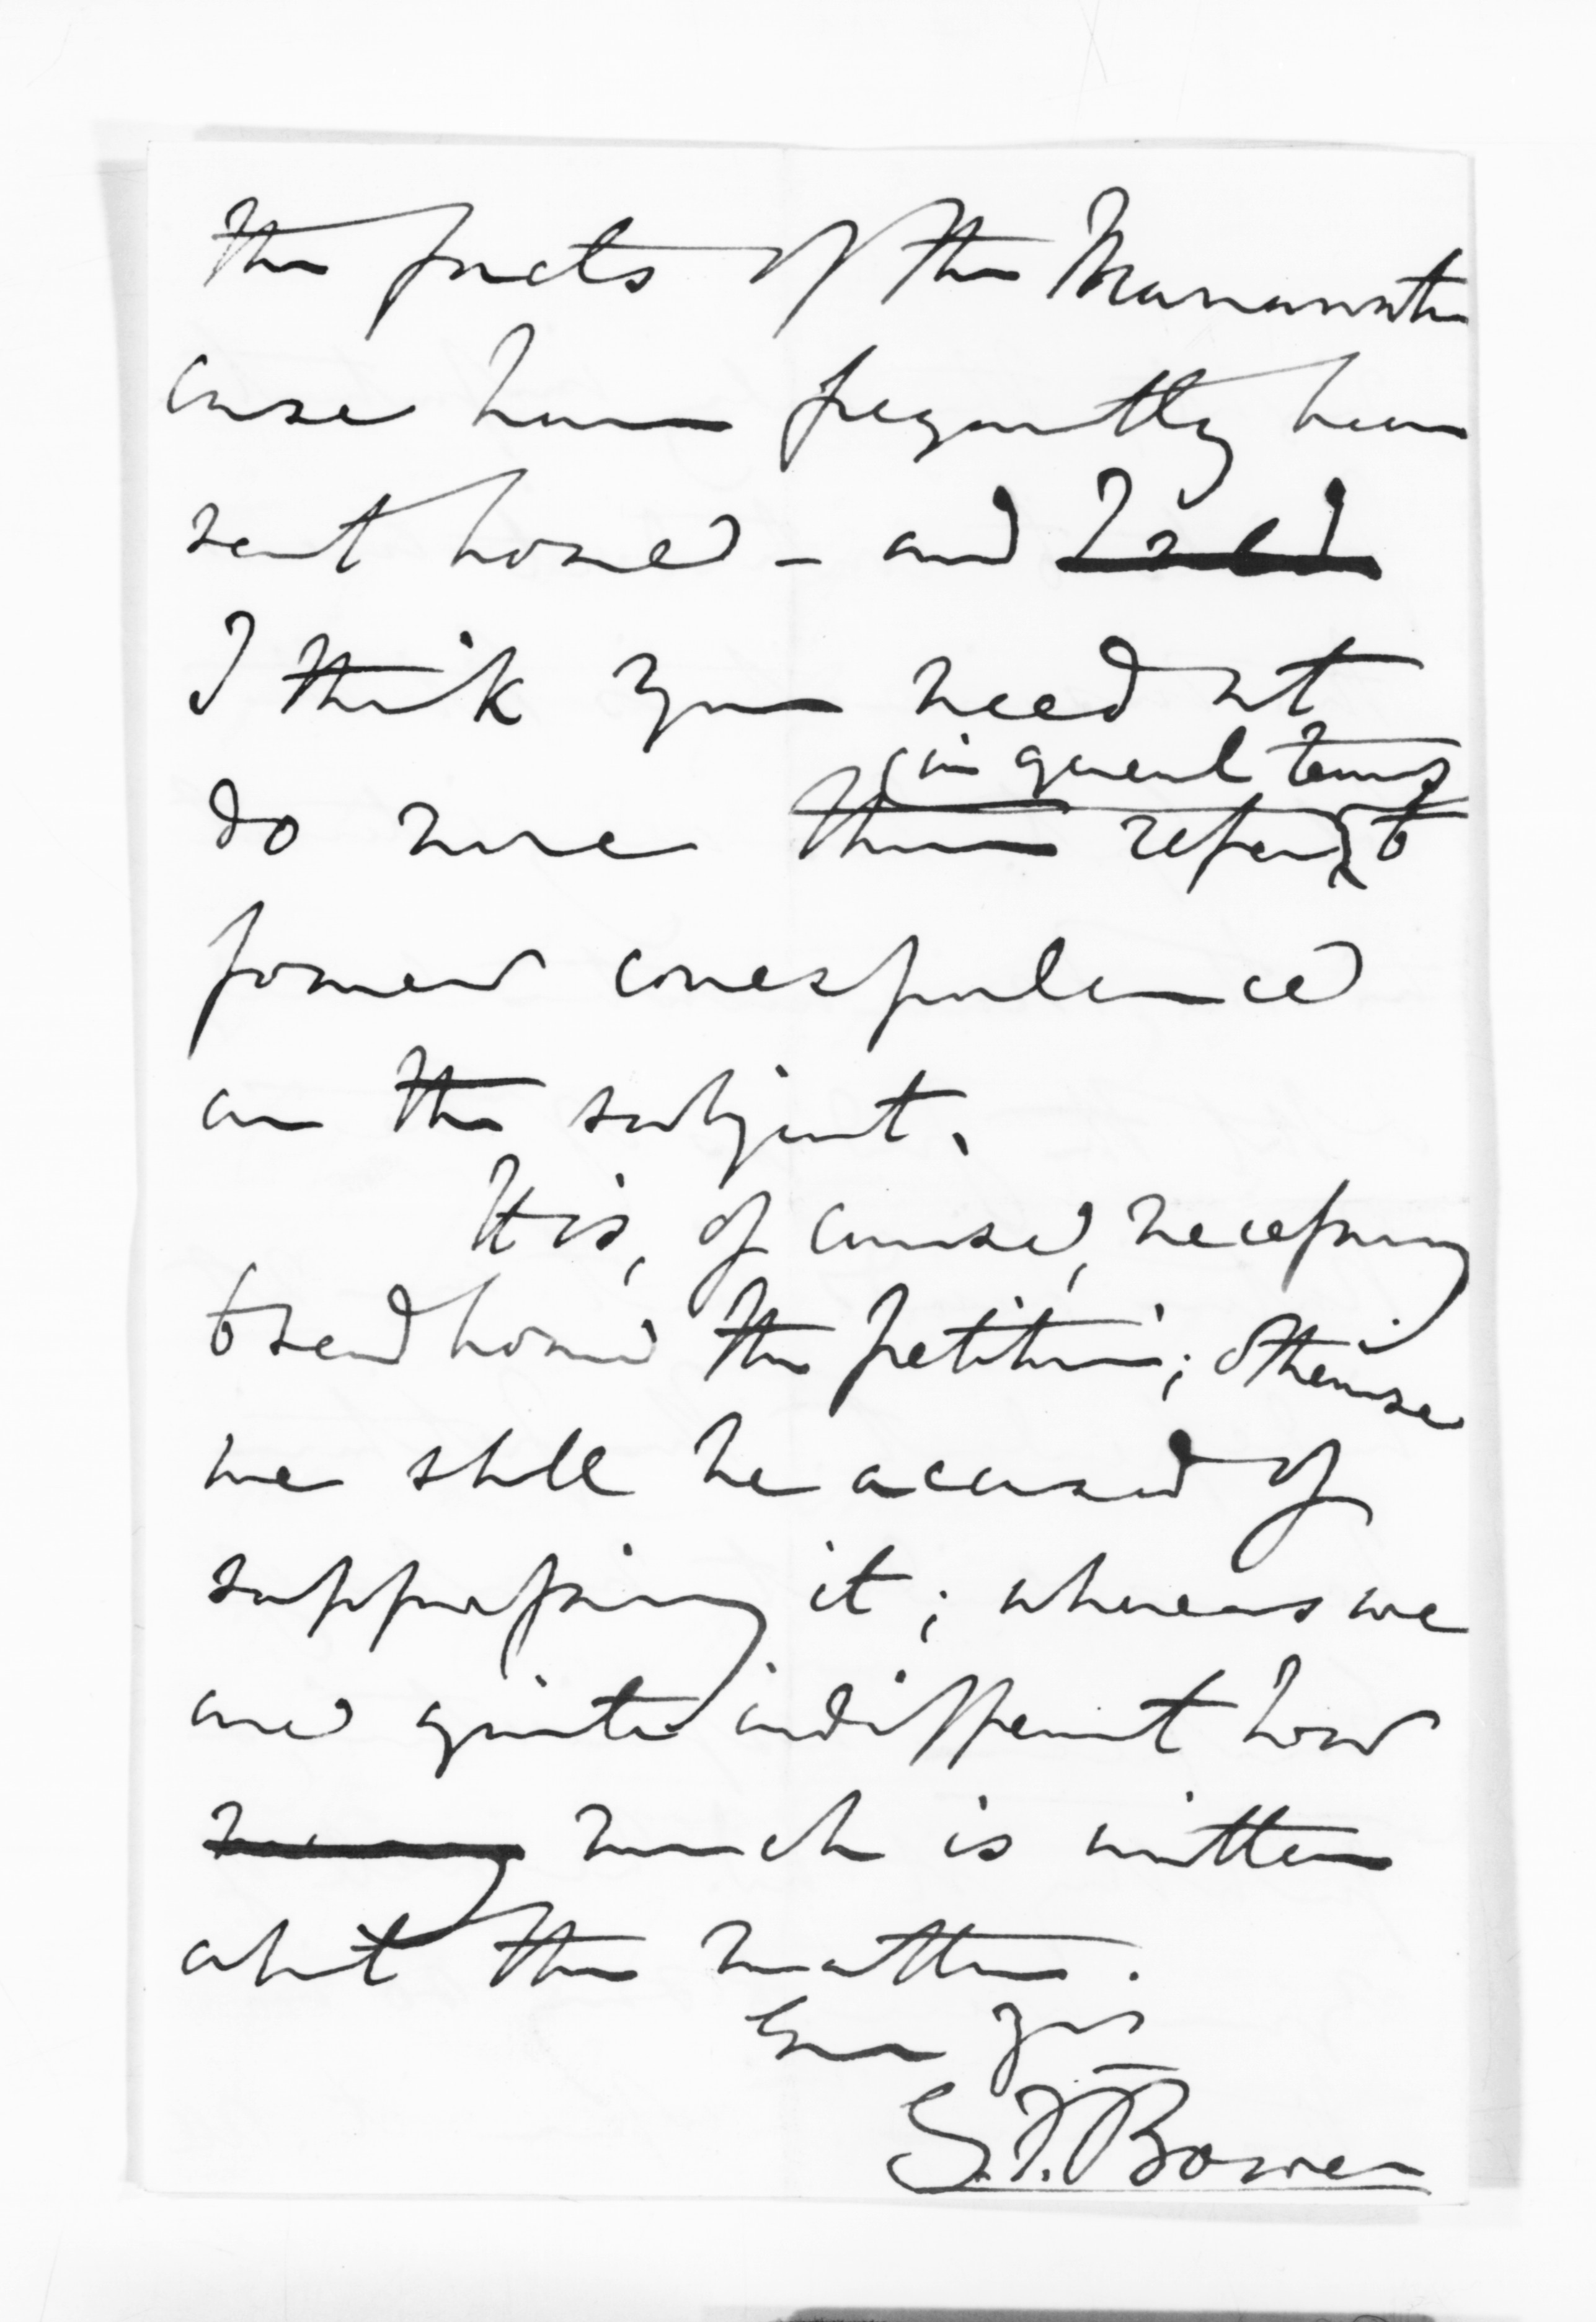 the facts of the Manawatu
case have frequently been
sent home – and
I think you need not
(in general terms
do more than refer) to
former correspondence
on the subject.
It is, of course, necessary
to send home the petition; otherwise
we shall be accused of
suppressing it; whereas we
are quite indifferent how
many much is written
about the matter.
Ever yrs
G. F. Bowen